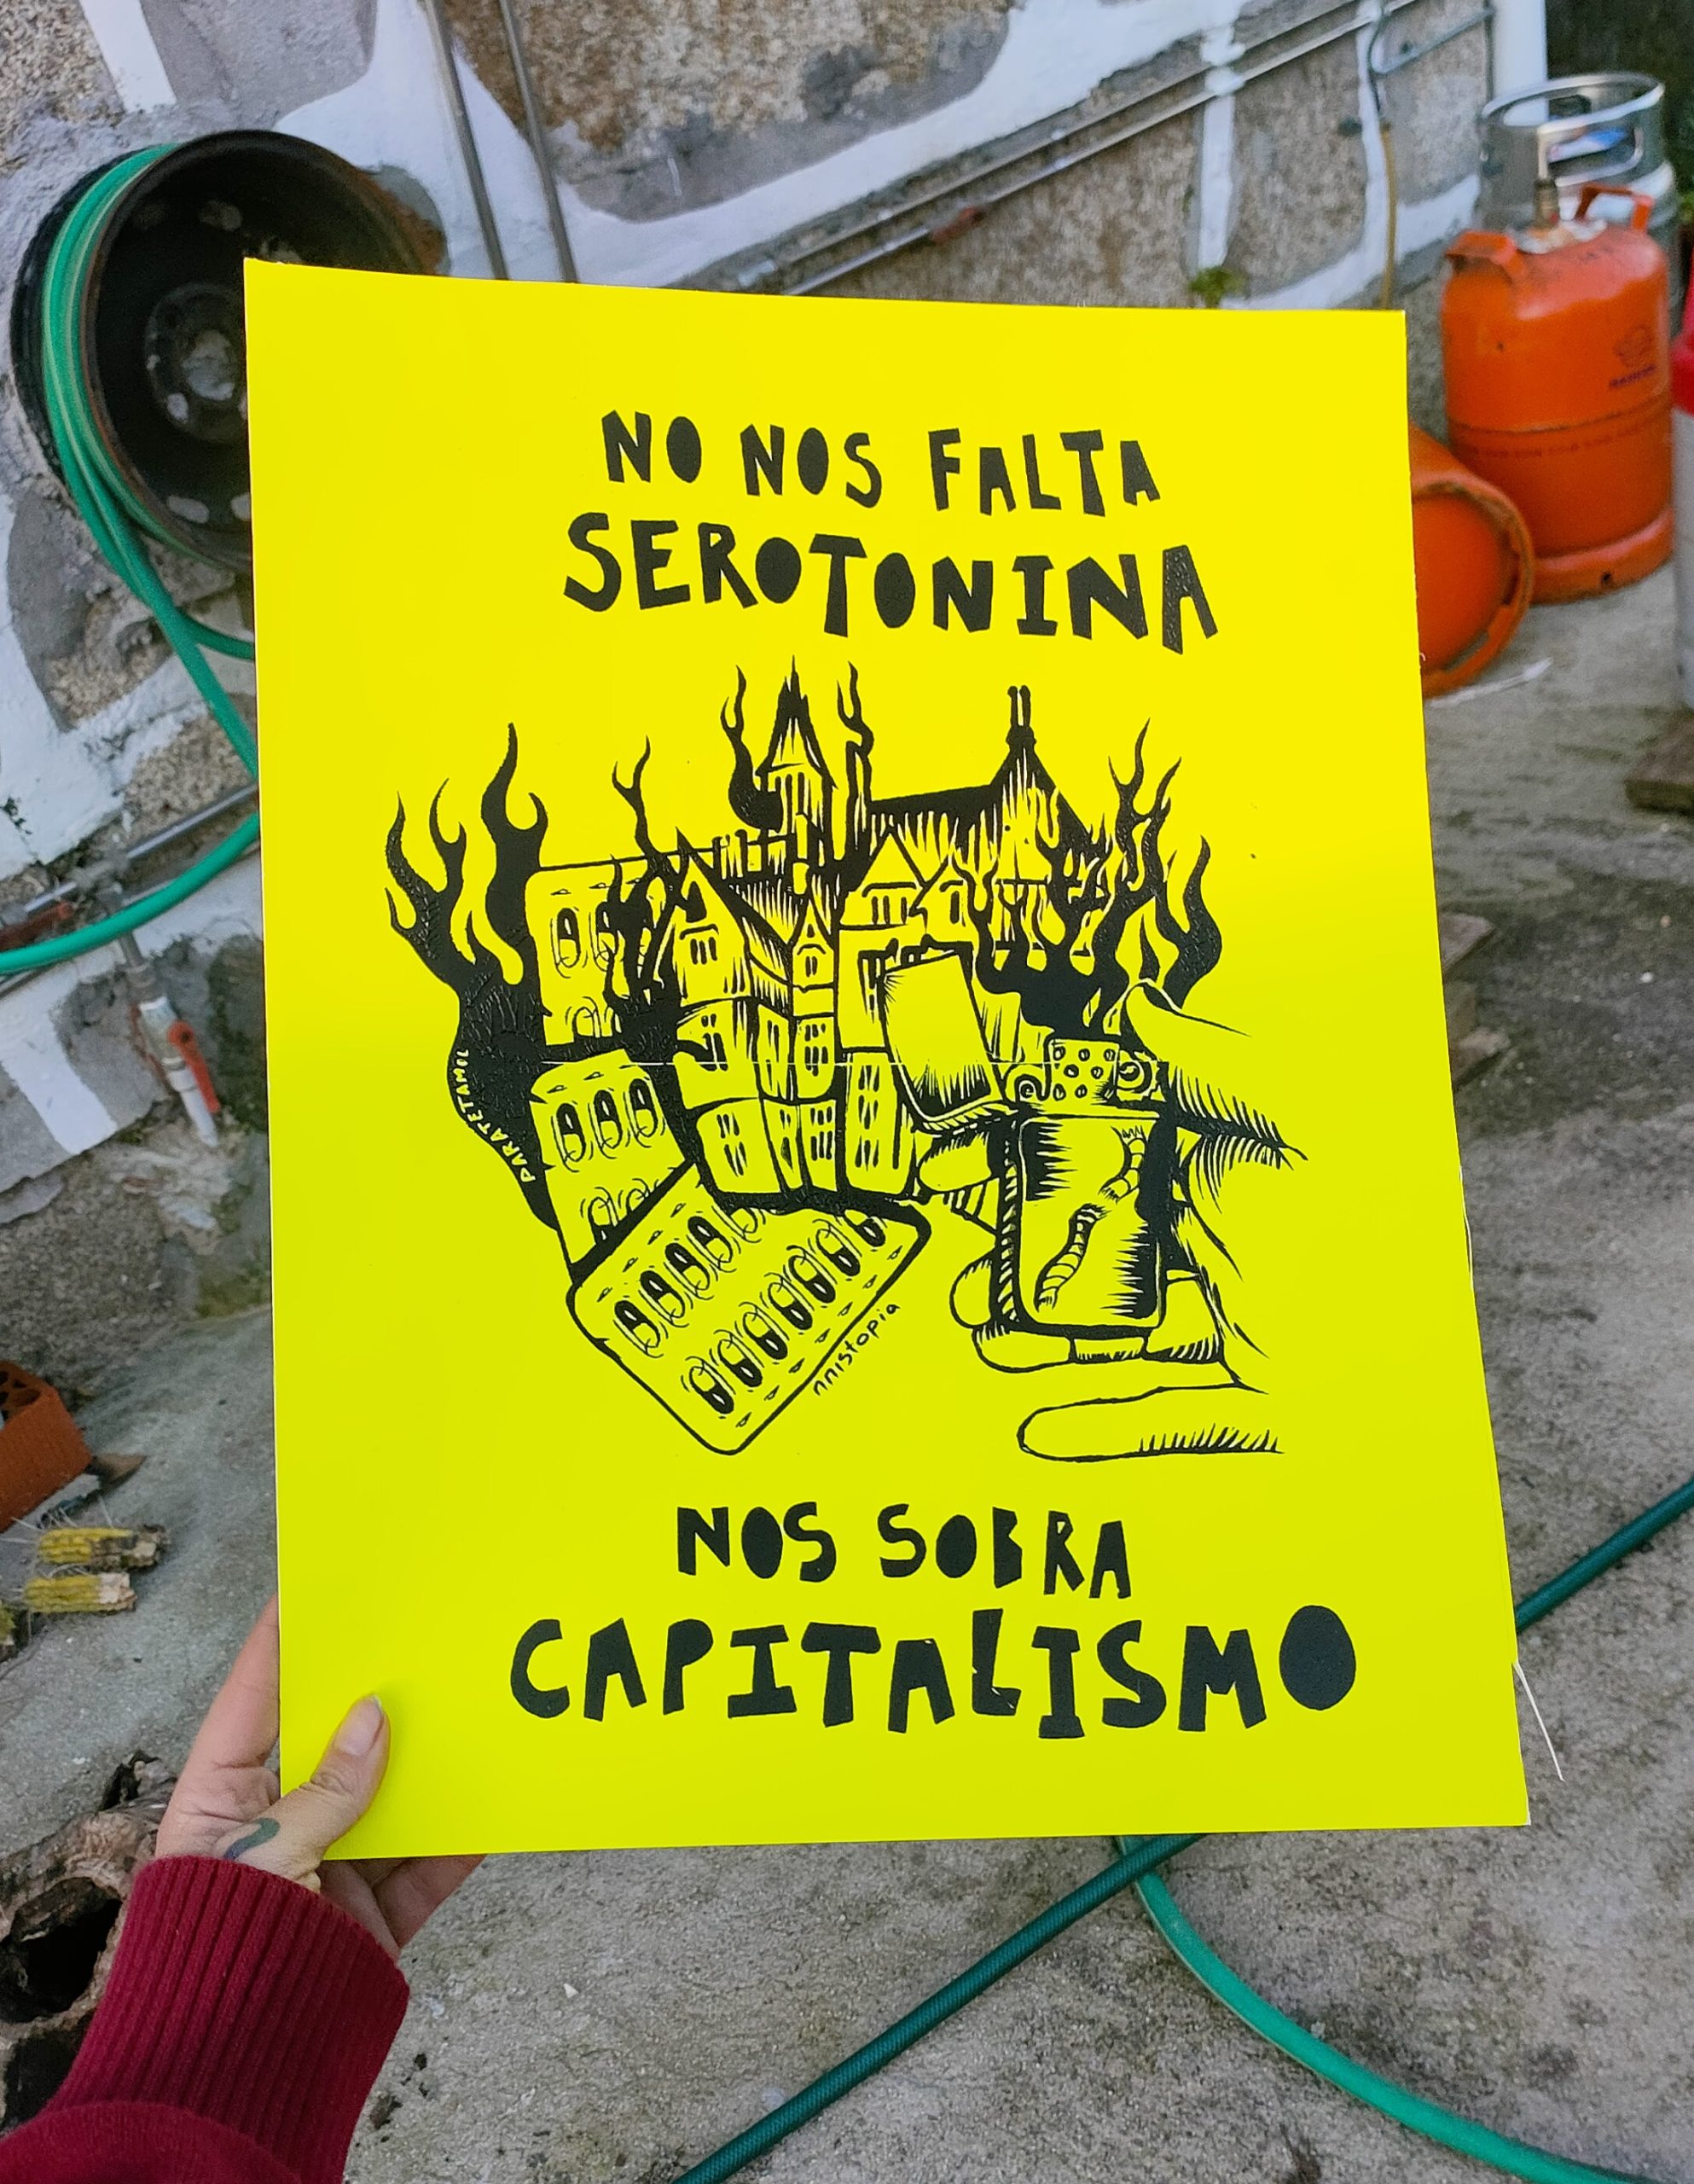 NO NOS FALTA
SEROTONINA
PARATETAMOL
nnistopia
NOS SOBRA
CAPITALISMO